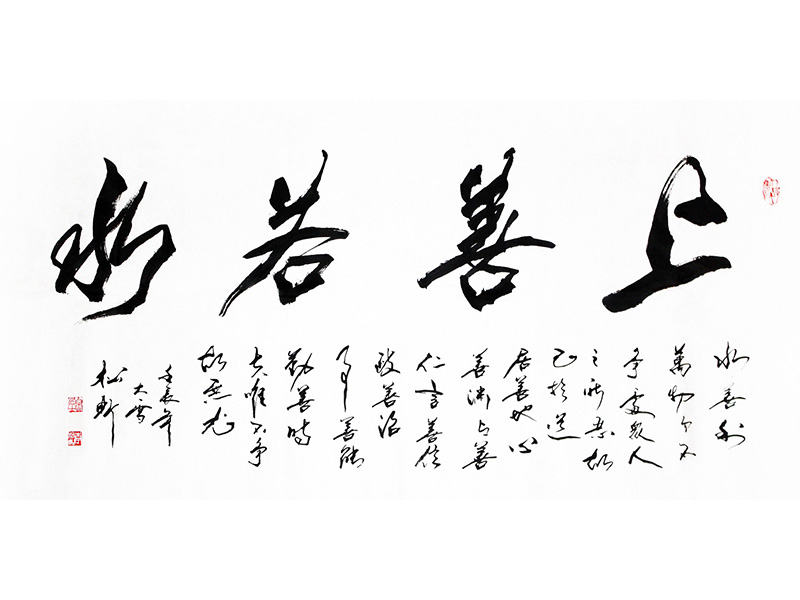 上善若水
水善利
萬物而不
爭處眾人
之所惡故
於道
居善地心
善淵与善
仁言善信
政善治
事善能
動善時
夫唯不爭
故無尤
壬辰年
大雪
松